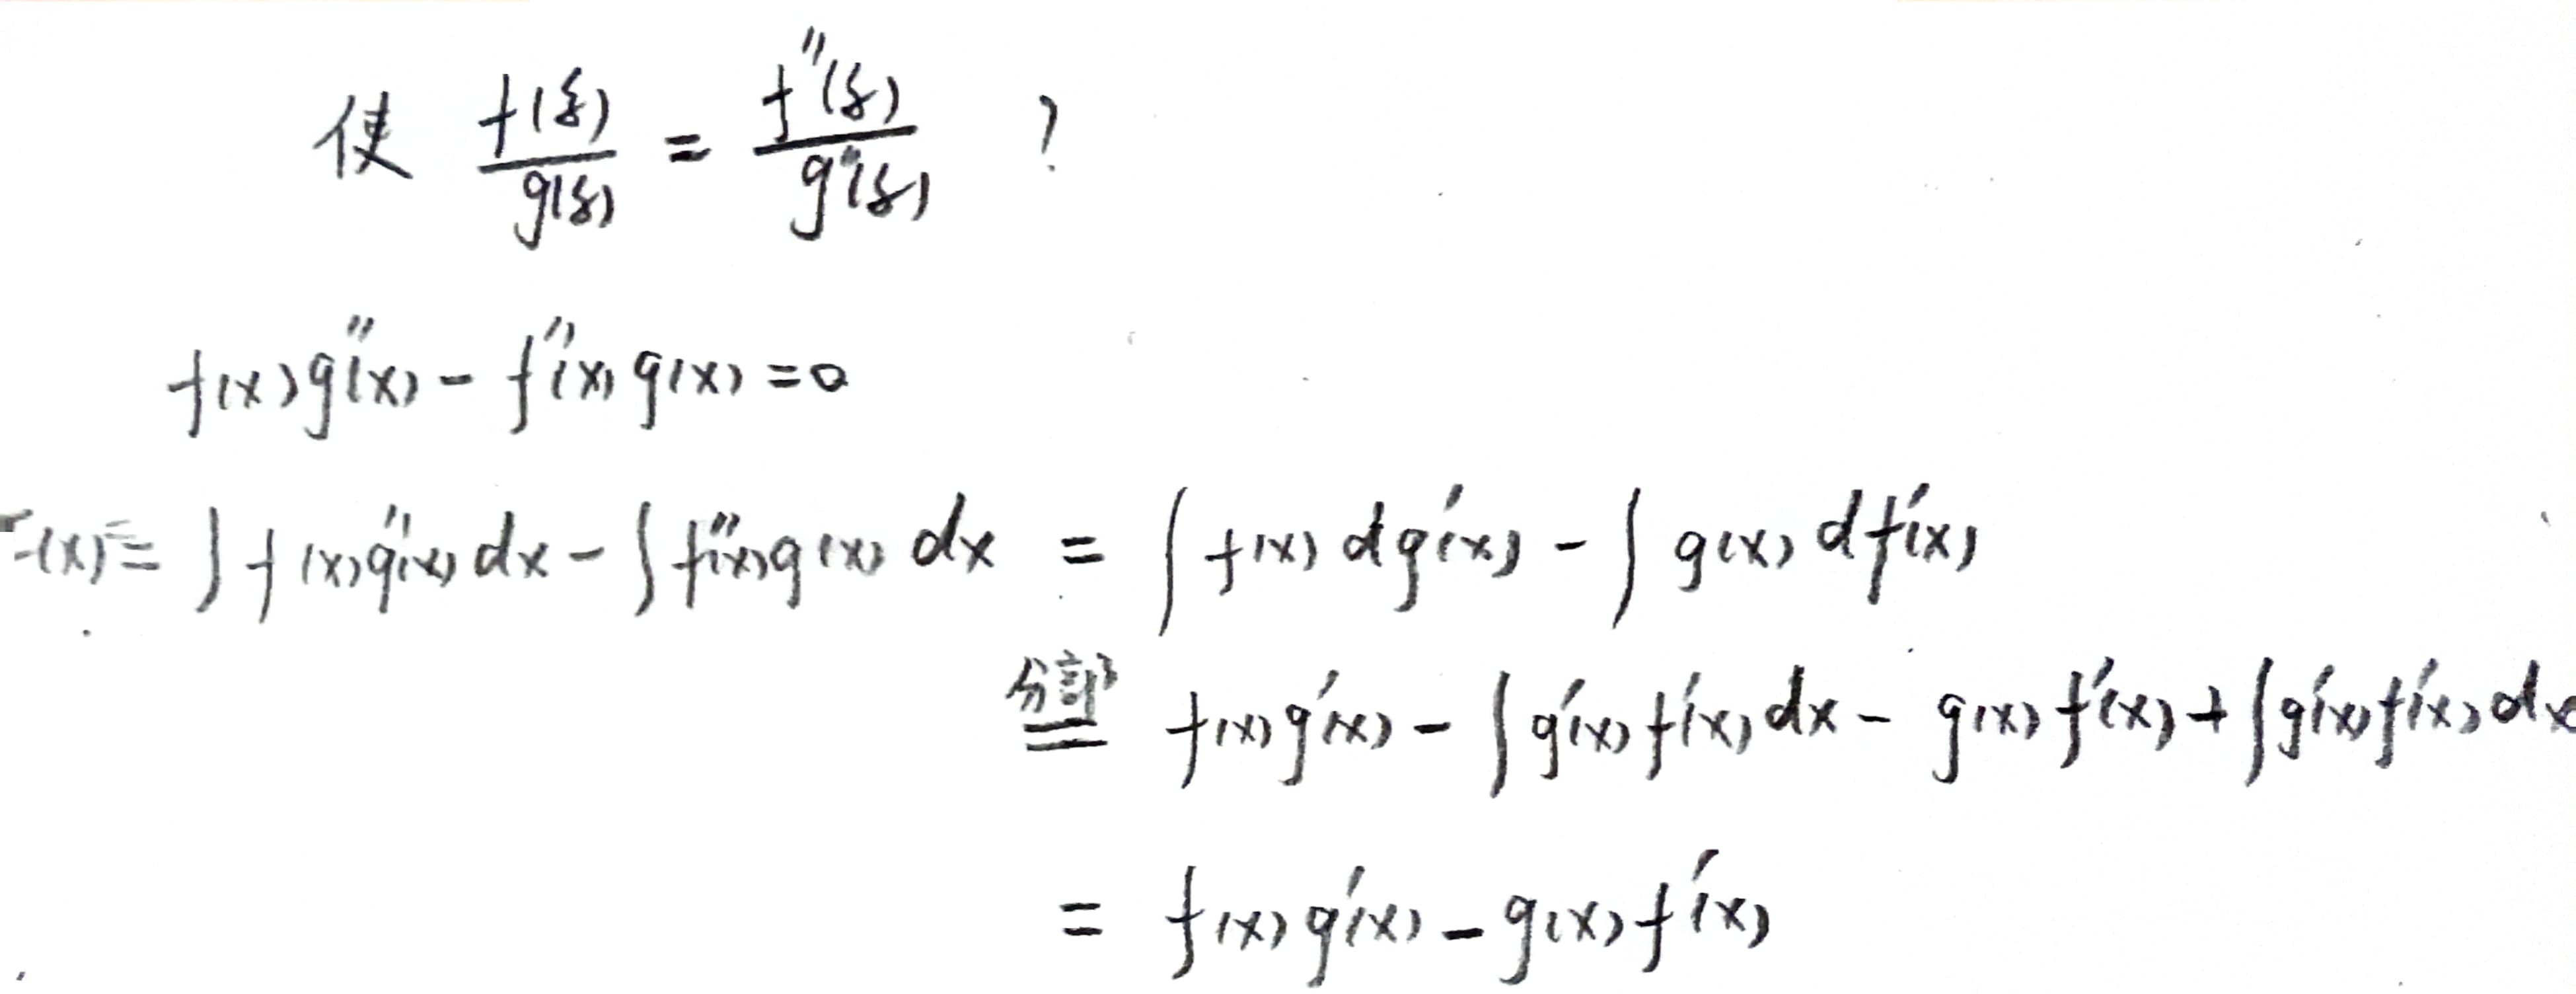 使 f(ξ)/g(ξ) = f''(ξ)/g''(ξ) ?
f(x)g''(x) - f''(x)g(x) = 0
F(x) = ∫f(x)g''(x)dx - ∫f''(x)g(x)dx = ∫f(x)dg'(x) - ∫g(x)df'(x)
分部 = f(x)g'(x) - ∫g'(x)f'(x)dx - g(x)f'(x) + ∫g'(x)f'(x)dx
= f(x)g'(x) - g(x)f'(x)